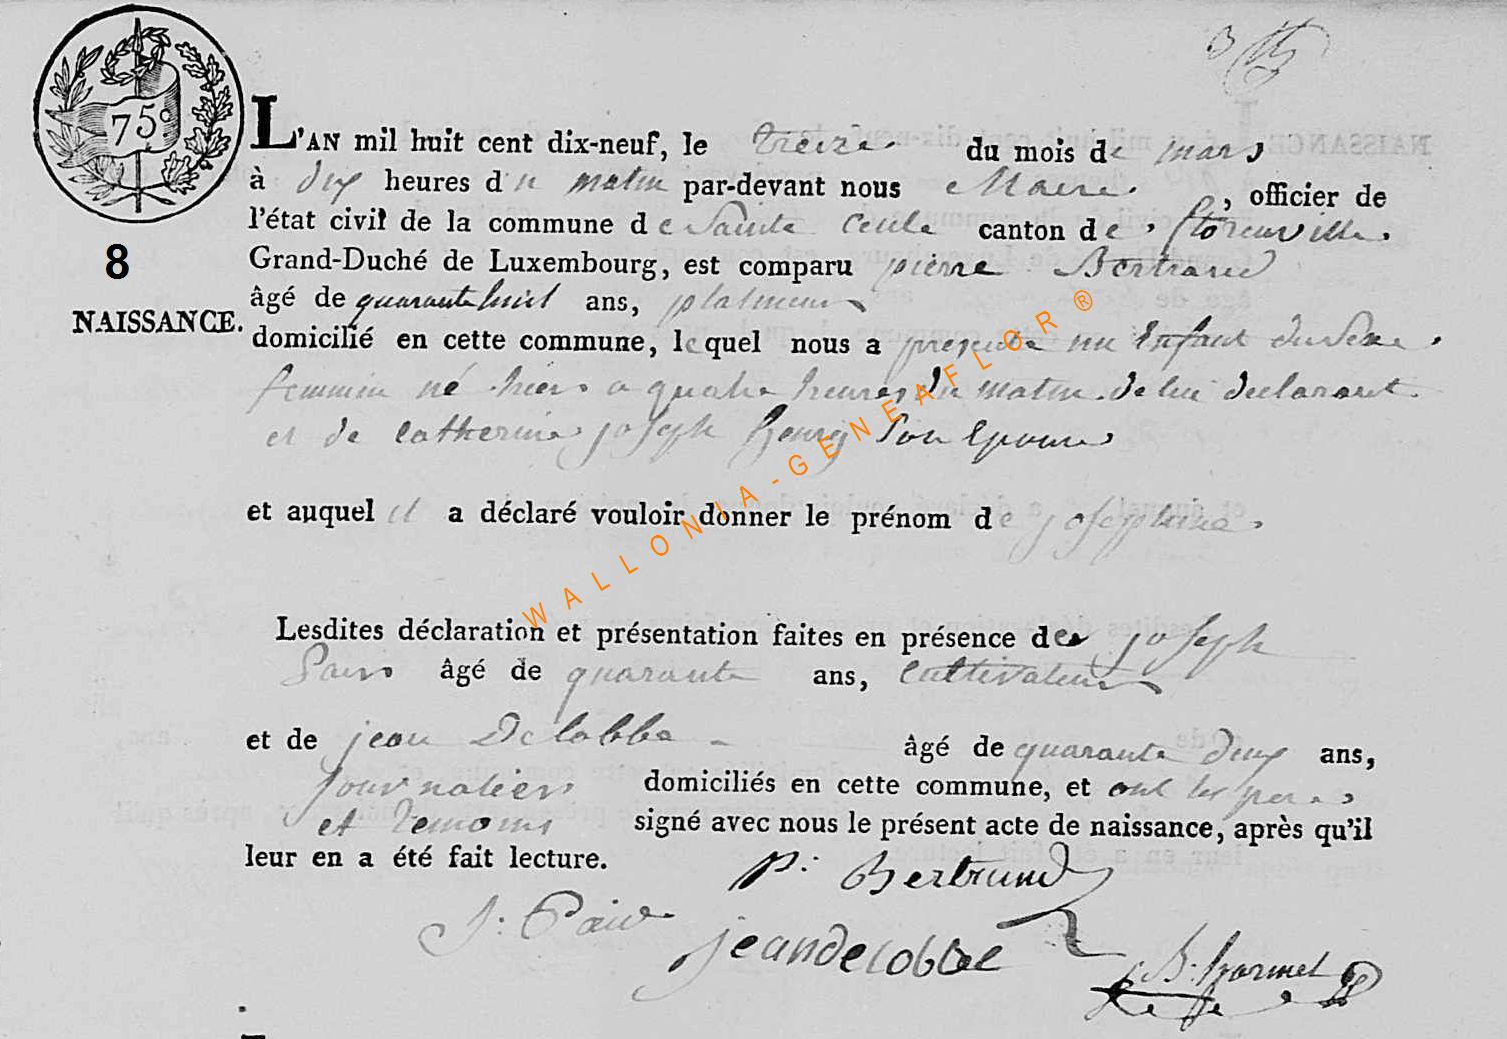 75c
L'AN mil huit cent dix-neuf, le treize du mois de mars
à dix heures du matin par-devant nous Maire, officier de
l'état civil de la commune de Sainte Cecile canton de florenville
Grand-Duché de Luxembourg, est comparu pierre Bertrand
âgé de quarante huit ans,
8
NAISSANCE.
domicilié en cette commune, lequel nous a presente un Enfant du Sexe
feminin né hier a quatre heures du matin de lui declarant
et de Catherine joseph henry Son Epouse
et auquel il a déclaré vouloir donner le prénom de josephine
Lesdites déclaration et présentation faites en présence de joseph
âgé de quarante ans, Cultivateur
et de jean Delobbe âgé de quarante deux ans,
journalier domiciliés en cette commune, et ont les pere
et temoins signé avec nous le présent acte de naissance, après qu'il
leur en a été fait lecture.
P. Bertrand
J.
jean delobbe
WALLONIA-GENEAFLOR ®